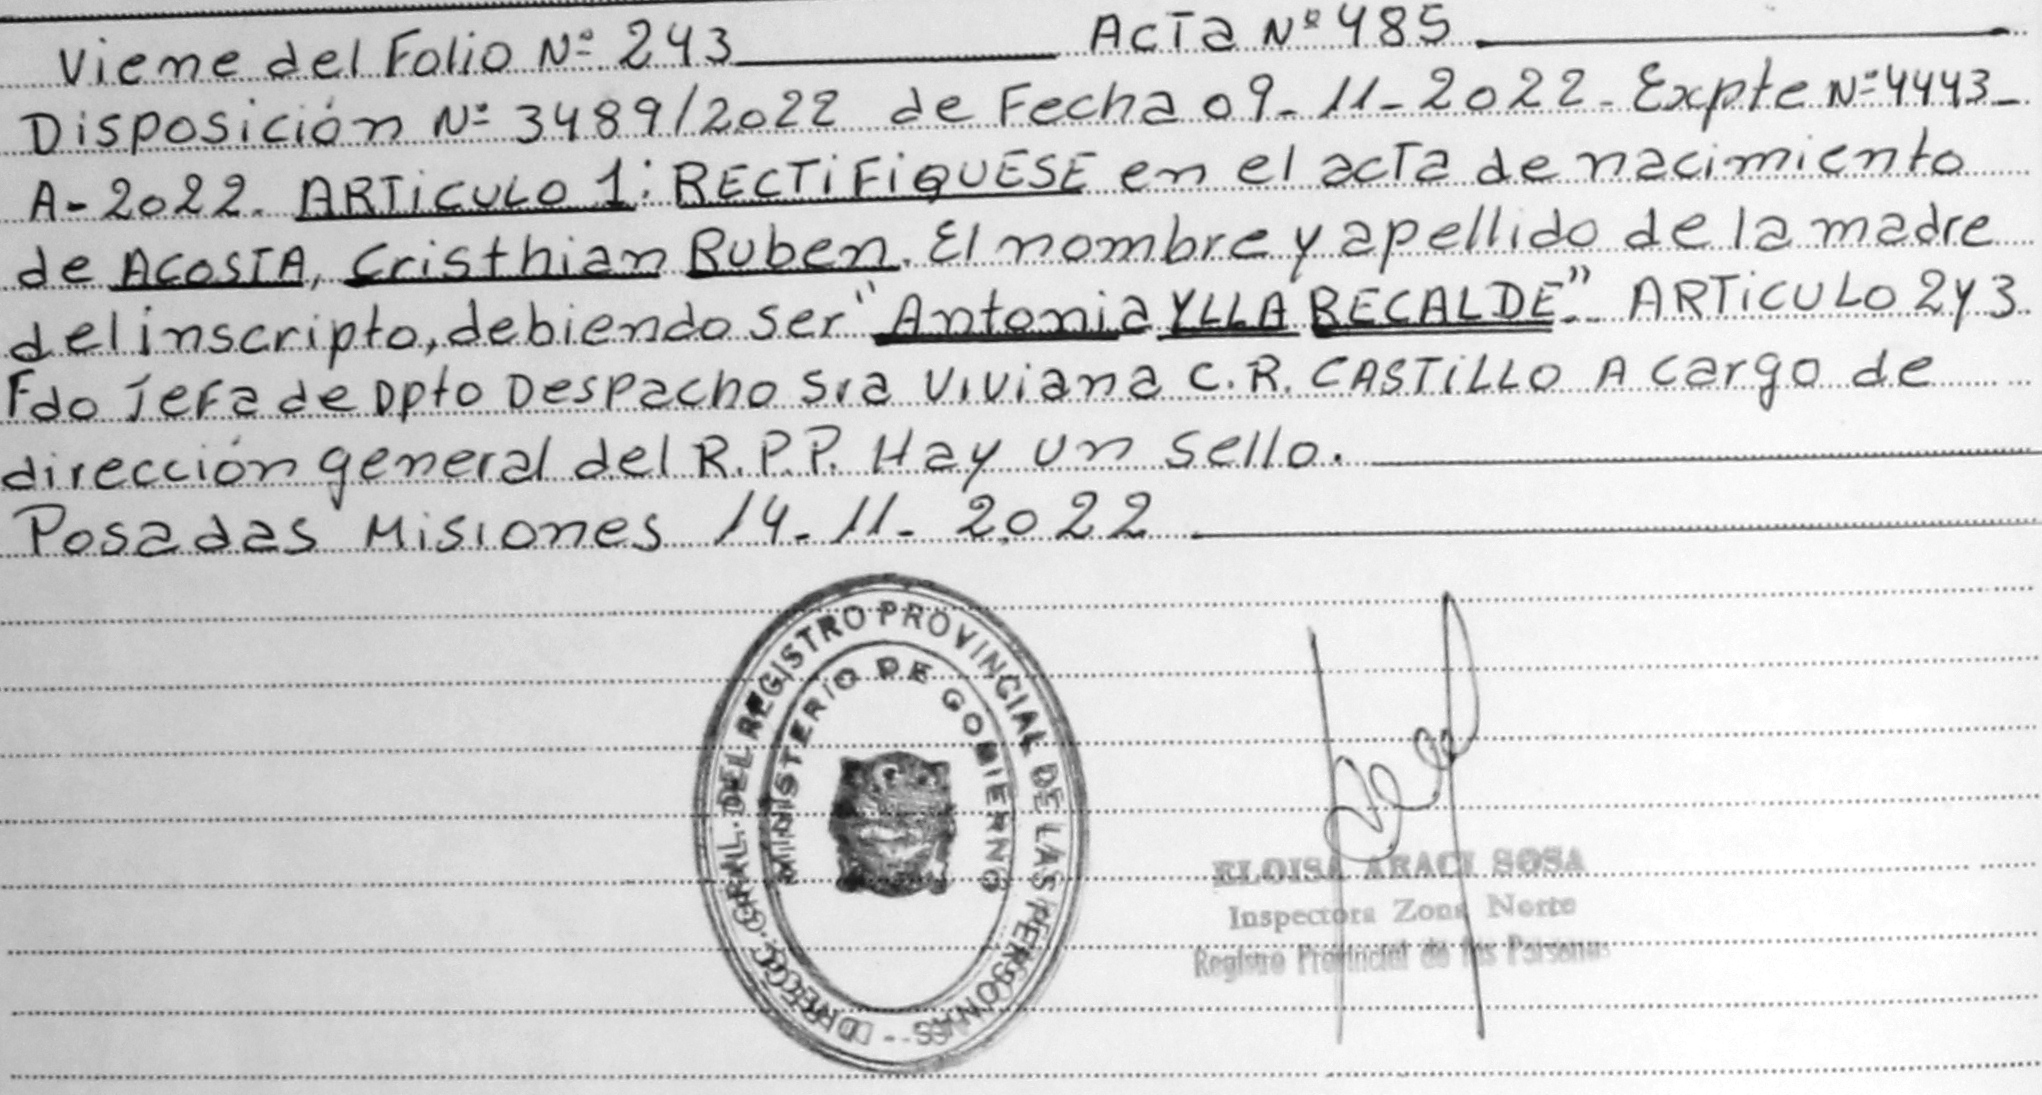 Viene del Folio Nº 243 Acta Nº 485
Disposición Nº 3489/2022 de Fecha 09-11-2022- Expte Nº 4443-
A-2022. ARTiCULO 1: RECTiFiQUESE en el acta de nacimiento
de ACOSTA, Cristhian Ruben. El nombre y apellido de la madre
del inscripto, debiendo ser "Antonia YLLA RECALDE". ARTiCULO 2 y 3.
Fdo Jefa de Dpto Despacho Sra Viviana C.R. CASTiLLO A cargo de
dirección general del R.P.P. Hay un sello.
Posadas Misiones 14-11-2022
DIRECC. GRAL. DEL REGISTRO PROVINCIAL DE LAS PERSONAS -
MINISTERIO DE GOBIERNO
ELOISA ARACI SOSA
Inspectora Zona Norte
Registro Provincial de las Personas